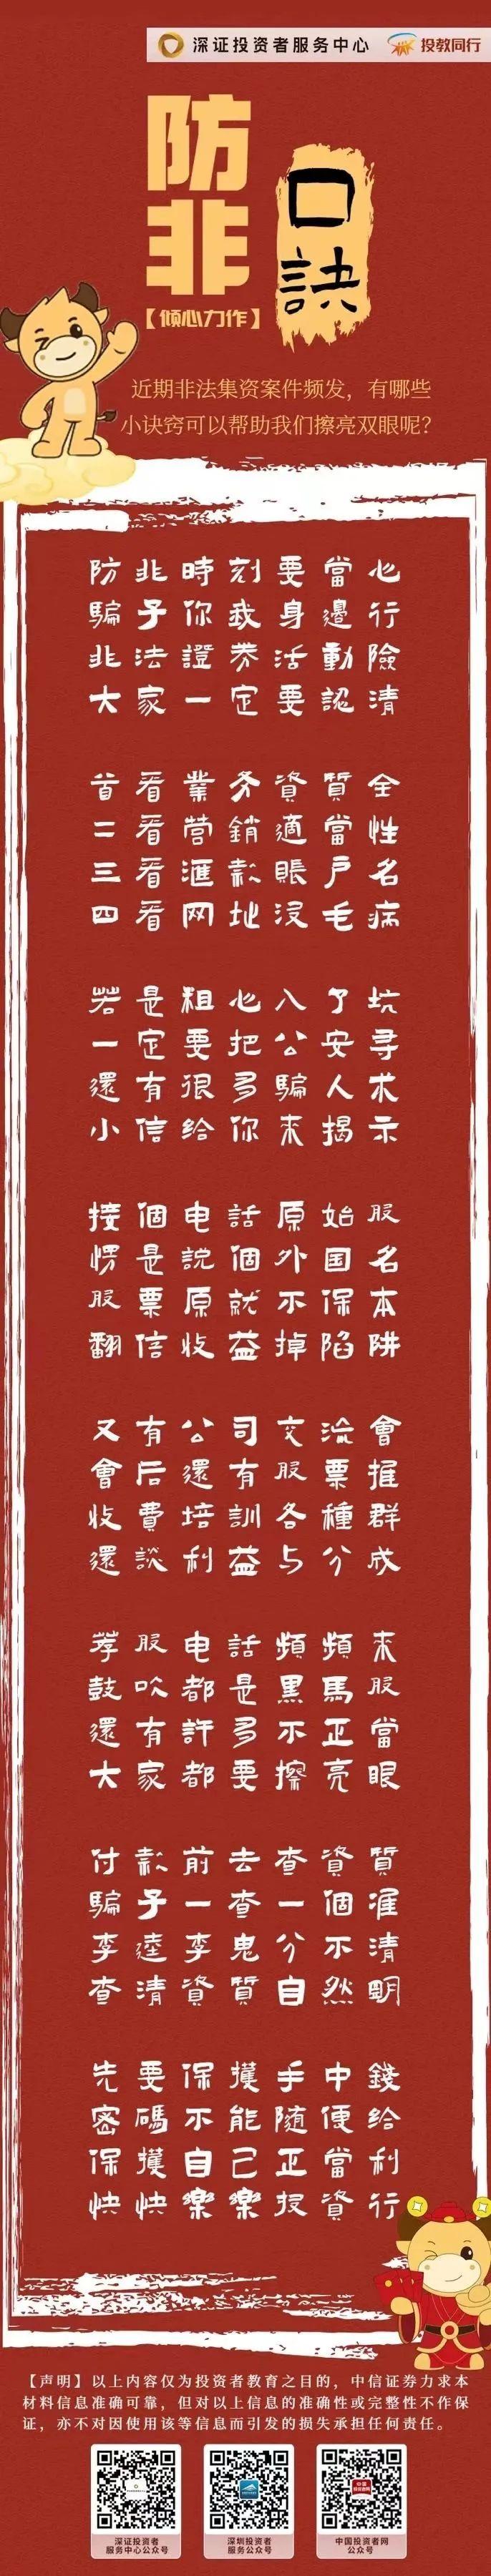 深证投资者服务中心 投教同行
防非
口訣
【倾心力作】
近期非法集资案件频发，有哪些
小诀窍可以帮助我们擦亮双眼呢？
防非時刻要當心
騙子你我身邊行
非法證券活動險
大家一定要認清
首看業务資質全
二看營銷適當性
三看匯款賬户名
四看网址没毛病
若是粗心入了坑
一定要把公安寻
還有很多騙人术
小信给你来揭示
接個电話原始股
愣是説個外国名
股票原就不保本
翻信收益掉陷阱
又有公司交流會
會后還有股票推
收費培訓各種群
還談利益与分成
荐股电話頻頻来
鼓吹都是黑馬股
還有許多不正當
大家都要擦亮眼
付款前去查資質
騙子一查一個准
李逵李鬼分不清
查清資質自然明
先要保護手中錢
密碼不能随便给
保護自己正當利
快快樂樂投資行
【声明】以上内容仅为投资者教育之目的，中信证券力求本
材料信息准确可靠，但对以上信息的准确性或完整性不作保
证，亦不对因使用该等信息而引发的损失承担任何责任。
深证投资者
服务中心公众号
深圳投资者
服务公众号
中国投资者网
公众号